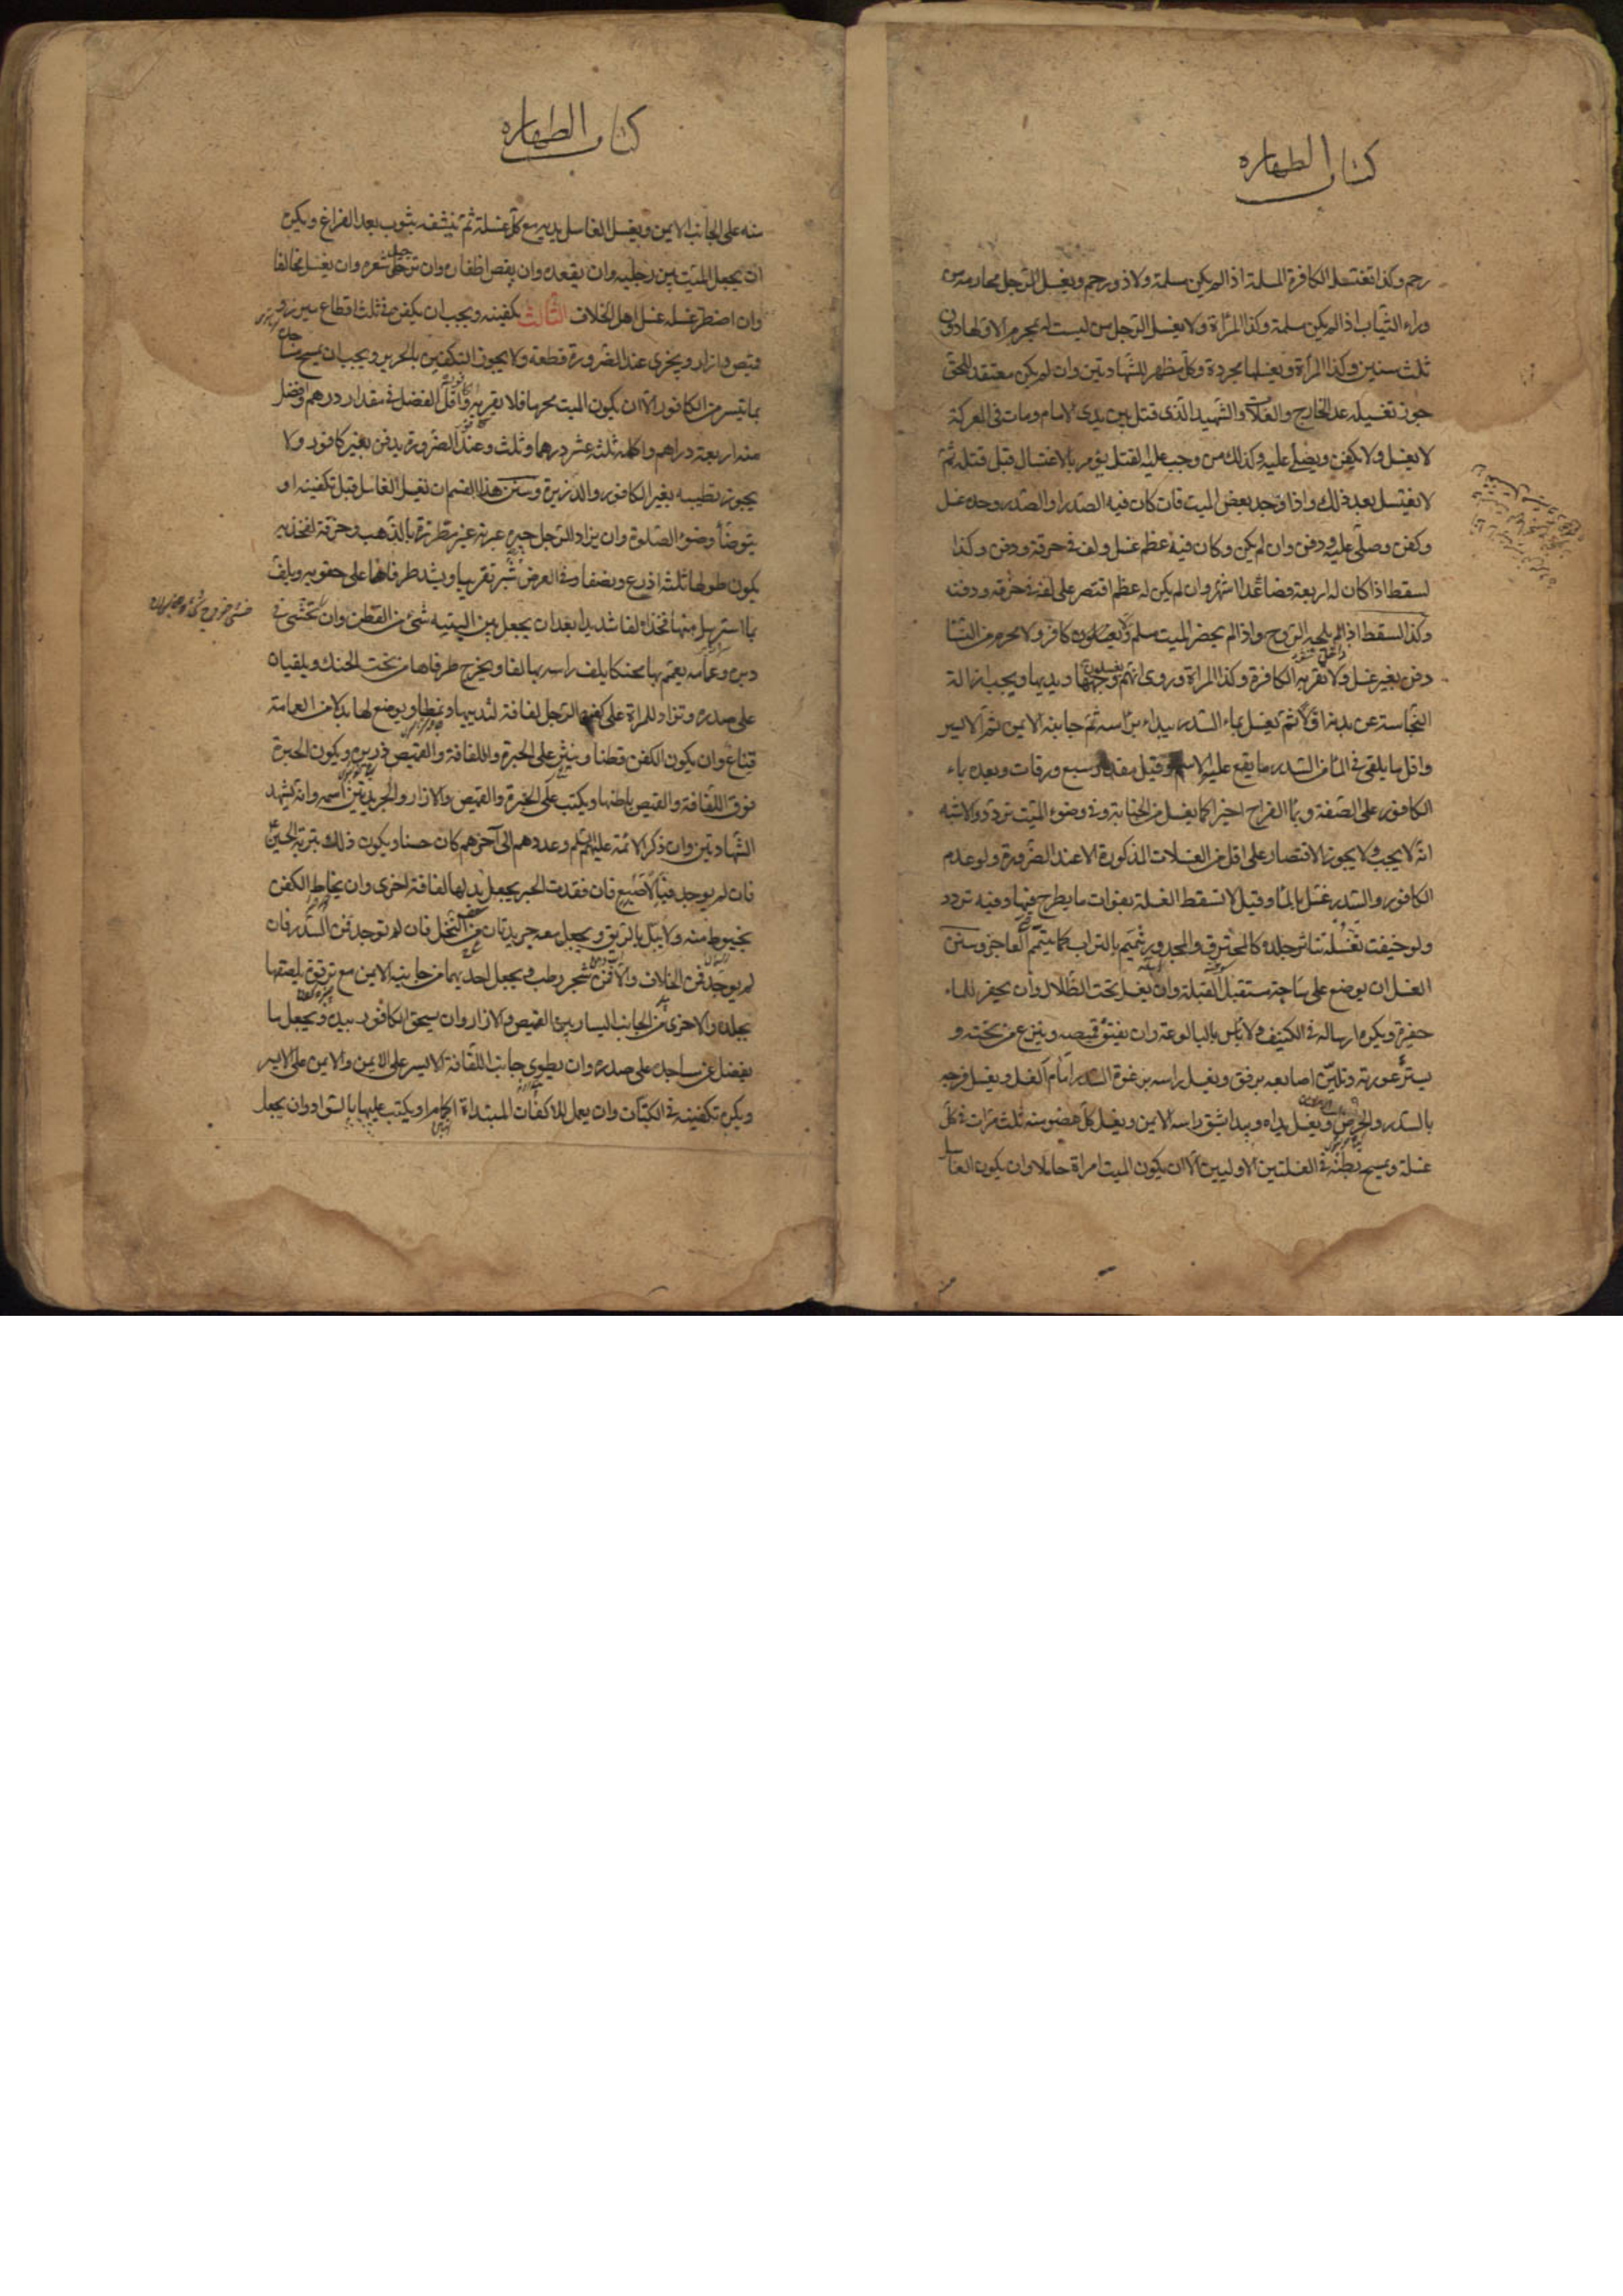 كتاب الطهاره
رحم وكذا تغتسل الكافرة المسلمة اذا لم يكن مسلمة ولا ذو رحم ويغسل الرجل محارمه من
وراء الثياب اذا لم يكن مسلمة وكذا المرأة ولا يغسل الرجل من ليست له بمحرم الا ولها دون
ثلث سنين وكذا المرأة ويغسلها مجردة وكل مظهر للشهادتين وان لم يكن معتقد للحق
جوز تغسيله عد الخارج والغلات والشهيد الذى قتل بين يدى الامام ومات فى المعركة
لا يغسل ولا يكفن ويصلى عليه وكذلك من وجب عليه القتل يؤمر بالاغتسال قبل قتله ثم
لا يغتسل بعد ذلك واذا وجد بعض الميت فان كان فيه الصدر او الصدر وحده غسل
وكفن وصلى عليه ودفن وان لم يكن وكان فيه عظم غسل ولف فى خرقة ودفن وكذا
لسقط اذا كان له اربعة فصاعدا اشهر وان لم يكن له عظم اقتصر على لفه فى خرقه ودفنه
وكذا السقط اذا لم يلجه الروح واذا لم يحضر الميت مسلم ولا كافر ولا محرم من النساء
دفن بغير غسل ولا تقربه الكافرة وكذا المراة وروى انهم يغسلون وجهها ويديها ويجب ازالة
النجاسة عن بدنه اولا ثم يغسل بماء السدر يبداء براسه ثم جانبه الايمن ثم الايسر
واقل ما يلقى فى الماء من السدر ما يقع عليه الاسم وقيل مقدار سبع ورقات وبعده بماء
الكافور على الصفة وبماء القراح اخيرا كما يغسل من الجنابة وفى وضوء الميت تردد والاشبه
انه لا يجب ولا يجوز الاقتصار على اقل من الغسلات المذكورة الا عند الضرورة ولو عدم
الكافور والسدر غسل بالماء وقيل لا تسقط الغسلة بفوات ما يطرح فيها وفيه تردد
ولو خيفت تغسله تناثر جلده كالمحترق والمجدور تيمم بالتراب كما يتيمم العاجز وسنن
الغسل ان يوضع على ساجة مستقبل القبلة وان يغسل تحت الظلال وان يحفر للماء
حفيرة ويكره ارساله فى الكنيف ولا باس بالبالوعة وان يفتق قميصه وينزع من تحته و
يستر عورته وتلين اصابعه برفق ويغسل راسه برغوة السدر امام الغسل ويغسل فرجه
بالسدر والحرض ويغسل يداه ويبدا بشق راسه الايمن ويغسل كل عضو منه ثلث مرات فى كل
غسلة ويمسح بطنه فى الغسلتين الاوليين الا ان يكون الميت امراة حاملا وان يكون الغاسل
كتاب الطهاره
منه على الجانب الايمن ويغسل الغاسل يديه مع كل غسلة ثم ينشفه بثوب بعد الفراغ ويكره
ان يجعل الميت بين رجليه وان يقعده وان يقص اظفاره وان ترجل شعره وان يغسل مخالفا
وان اضطر غسله غسل اهل الخلاف الثالث تكفينه ويجب ان يكفن فى ثلث اقطاع ميزر و
قميص وازار ويجزى عند الضرورة قطعة ولا يجوز التكفين بالحرير ويجب ان يمسح مساجده
بما تيسر من الكافور الا ان يكون الميت محرما فلا يقربه واقل الفضل فى مقدار درهم وافضل
منه اربعة دراهم واكمله ثلثة عشر درهما وثلث وعند الضرورة يدفن بغير كافور ولا
يجوز تطييبه بغير الكافور والذريرة وسنن هذا القسم ان تغسل الغاسل قبل تكفينه او
يتوضأ وضوء الصلوة وان يزاد للرجل حبره عبرية غير مطرزة بالذهب وخرقة لفخذيه
يكون طولها ثلثة اذرع ونصفا وفى العرض شبر تقريبا ويشد طرفاها على حقويه ويلف
بما استرسل منها فخذاه لفا شديدا بعد ان يجعل بين اليتيه شئ من القطن وان يحتشى فى
دبره وعمامه يعتم بها محنكا يلف راسه بها لفا ويخرج طرفاها من تحت الحنك ويلقيان
على صدره وتزاد للمراة على كفن الرجل لفافة لثدييها ونمطا ويوضع لها بدلا من العمامة
قناع وان يكون الكفن قطنا وينثر على الحبرة واللفافة والقميص ذريره ويكون الحبرة
فوق اللفافة والقميص باطنها ويكتب على الحبرة والقميص والازار والجريدتين اسمه وانه يشهد
الشهادتين وان ذكر الائمة عليهم السلم وعددهم الى آخرهم كان حسنا ويكون ذلك بتربة الحسين
فان لم يوجد فبالاصبع فان فقدت الحبر يجعل بدلها لفافة اخرى وان يخاط الكفن
بخيوط منه ولا يبل بالريق ويجعل معه جريدتان من النخل فان لم توجد فمن السدر فان
لم يوجد فمن الخلاف والا فمن شجر رطب ويجعل احديهما من جانبه الايمن مع ترقوته يلصقها
بجلده والاخرى من الجانب اليسار بين القميص والازار وان سحق الكافور بيده ويجعل ما
يفضل عن مساجده على صدره وان يطوى جانب اللفافة الايسر على الايمن والايمن على الايسر
ويكره تكفينه فى الكتان وان يعمل للاكفان المبتداة اكمام او يكتب عليها بالسواد وان يجعل